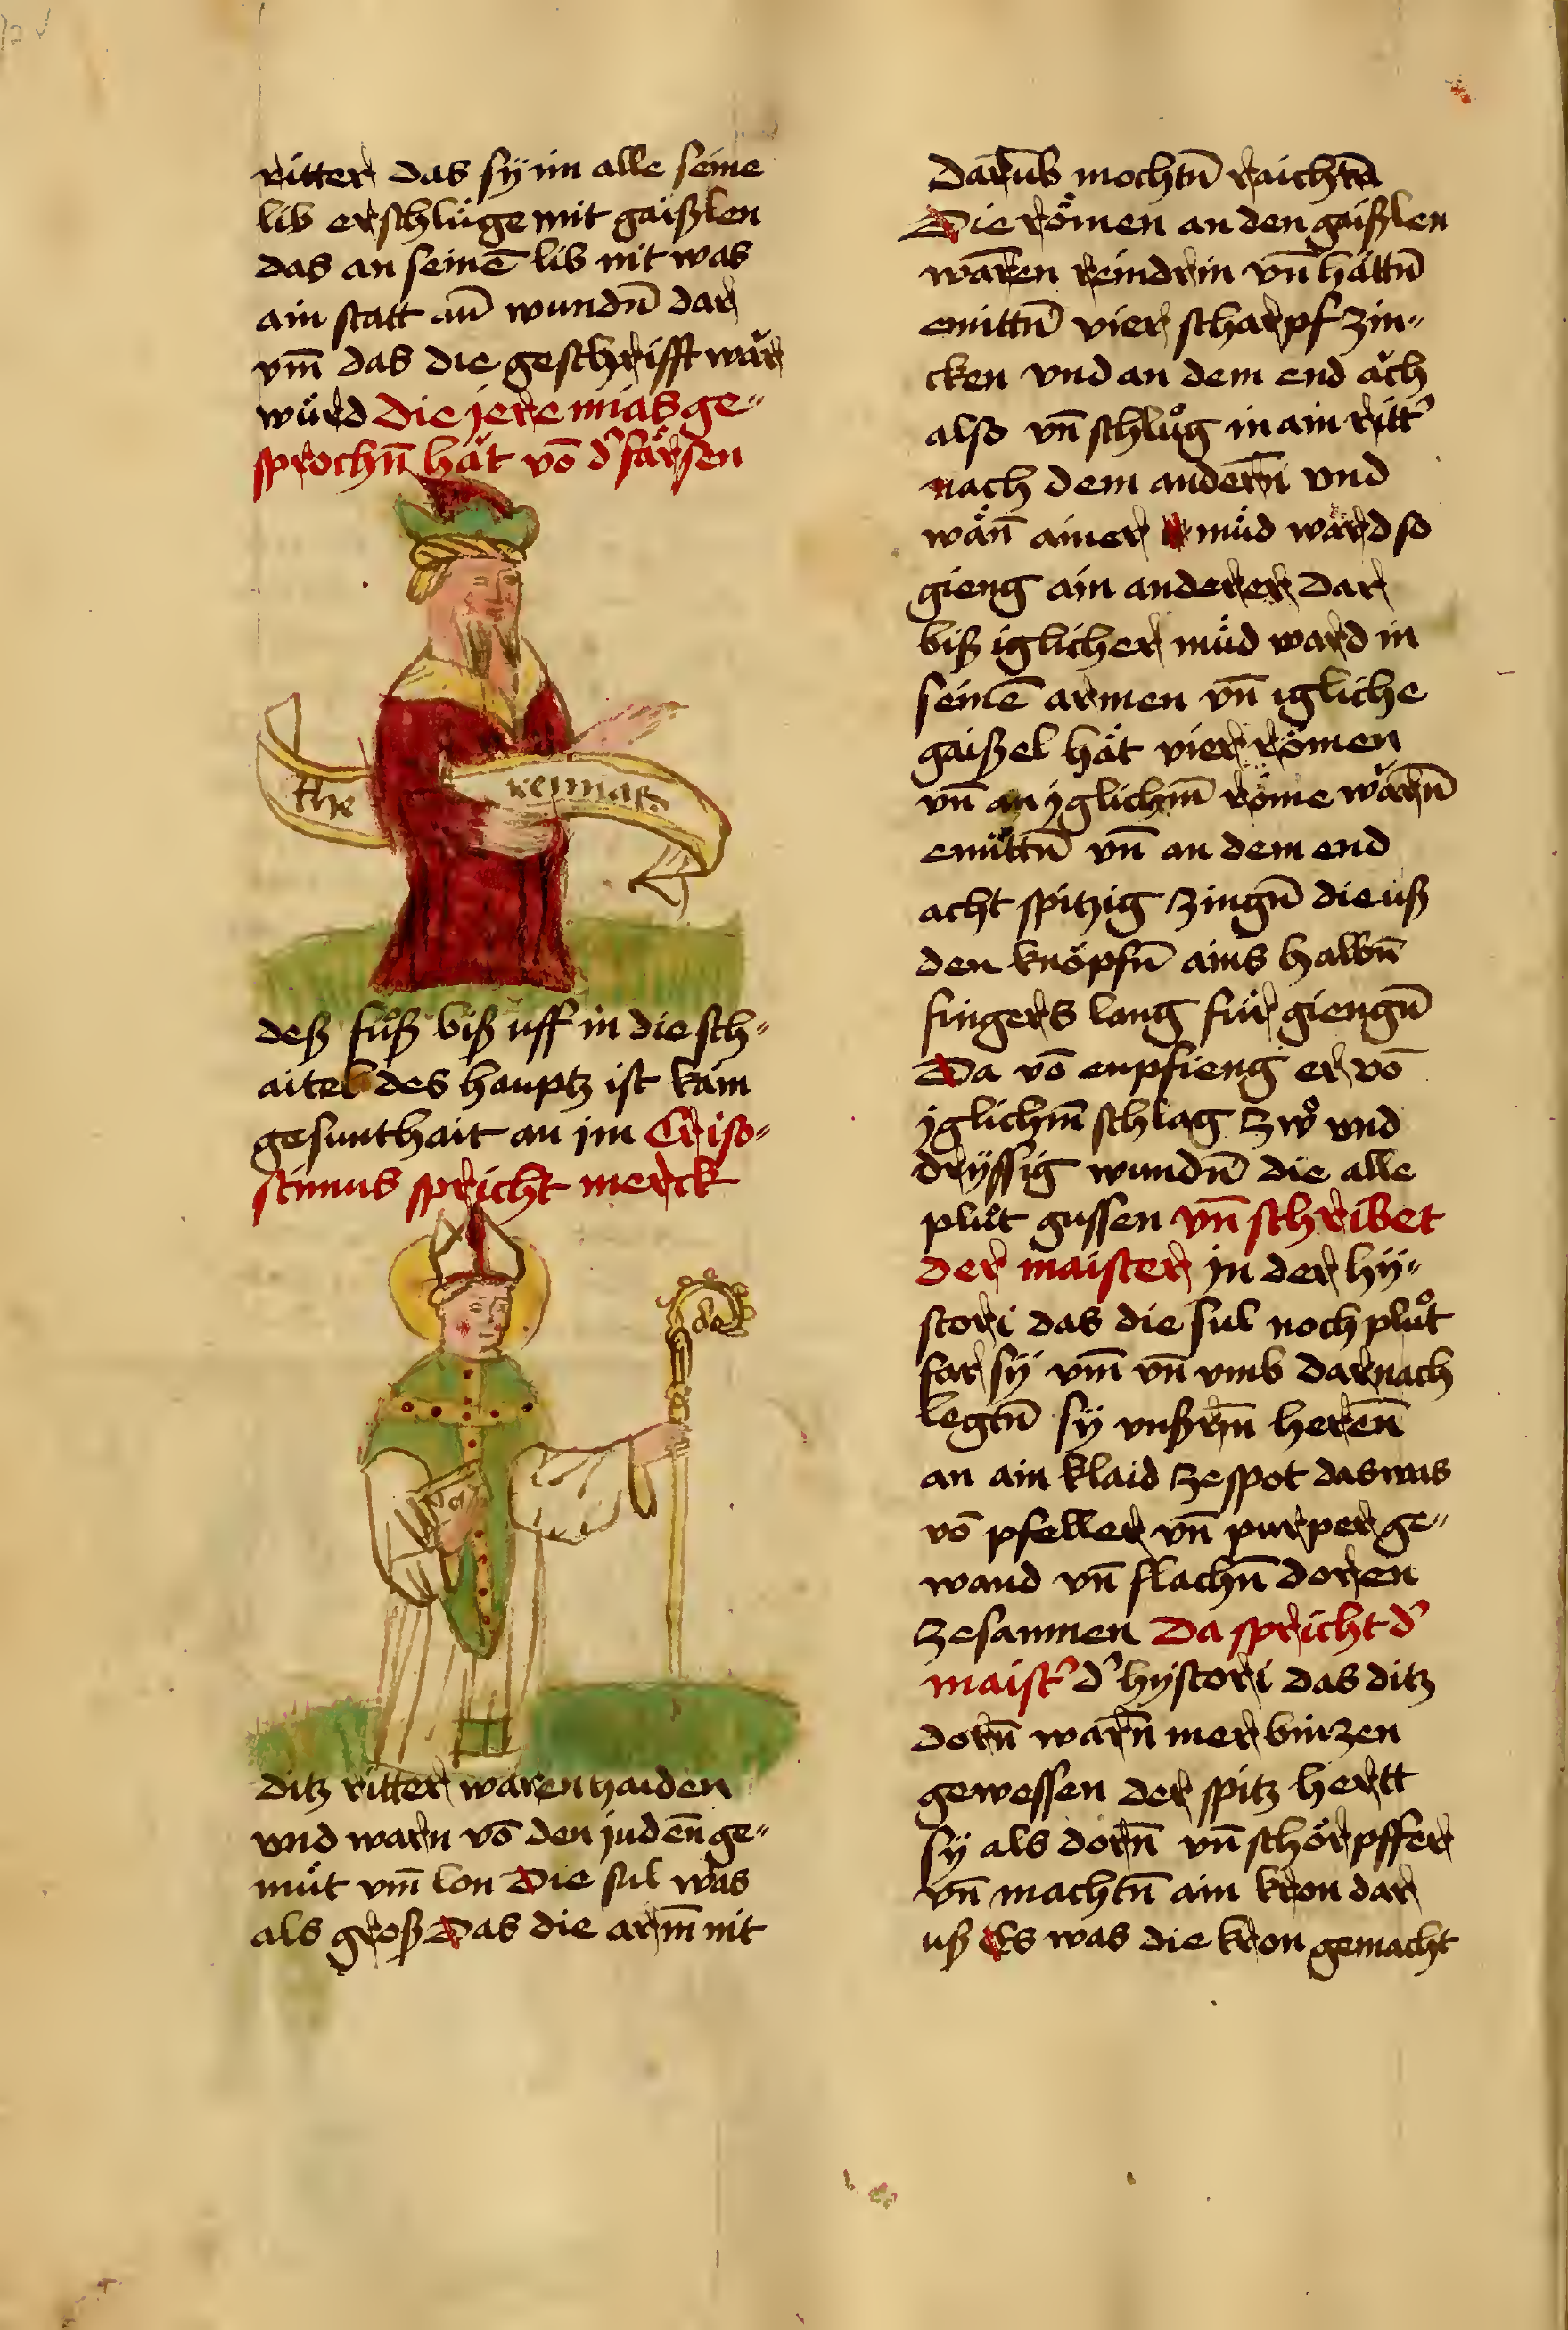 ritter das sÿ im alle seine
lib erschlüge mit gaißlen
das an seinē lib nit was
ain statt aū wundn̄ dar
vm̄ das die geschrifft wăr
würd die jeremias ge-
sprochn̄ hăt vō d' färsen
the remias
deß fuͦß biß uff in die sch-
aitel des hauptz ist kain
gesunthait an im Criso-
stimus spricht merck
ditz ritter waren haiden
vnd warn vō den judēn ge-
müt vm̄ lon Die sul was
als groß Das die arm̄ nit
Darūb mochtn̄ raichtn̄
Die römen an den gaißlen
wāren reindrin vn̄ hättn̄
emittn̄ vier scharpf zin-
cken vnd an dem end ăch
also vn̄ schluͦg in ain ritt'
nach dem andern̄ vnd
wän̄ ainer müd wärd so
gieng ain anderer dar
biß iglicher müd ward in
seinē armen vn̄ igliche
gaißel hăt vier römen
vn̄ an yglichm̄ röme wărn̄
emittn̄ vn̄ an dem end
acht spitzig zingn̄ die uß
den knöpfn̄ ains halbn̄
fingers lang für giengn̄
Da vō enpfieng er vō
yglichm̄ schlag zwͦ vnd
drÿssig wundn̄ die alle
pluͦt gussen vn̄ schribet
der maister in der hÿ-
stori das die sul noch pluͦt
far sÿ vm̄ vn̄ vmb darnach
legtn̄ sÿ vnßrm̄ herēn
an ain klaid ze spot das was
vō pfeller vn̄ purper ge-
wand vn̄ flachn̄ doren
zesamen Da spricht d'
maist' d' hystori das ditz
dorn̄ warn̄ mer binzen
gewessen der spitz hertt
sÿ als dorn̄ vn̄ schörpffer
vn̄ machtn̄ ain kron dar
uß Es was die kron gemacht